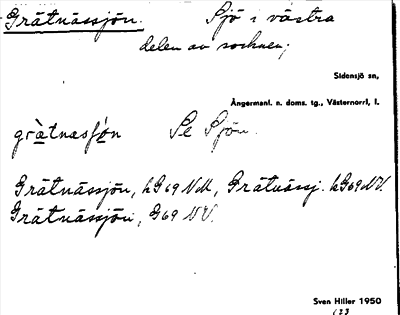 Grätnässjön. Sjö i västra
delen av socknen;
Sidensjö sn,
Ångermanl. n. doms. tg., Västernorrl, l.
Se Sjön.
Grätnässjön, hG69NV, Grätnässj. hG69NV.
Grätnässjön, G69 NV.
Sven Hiller 1950